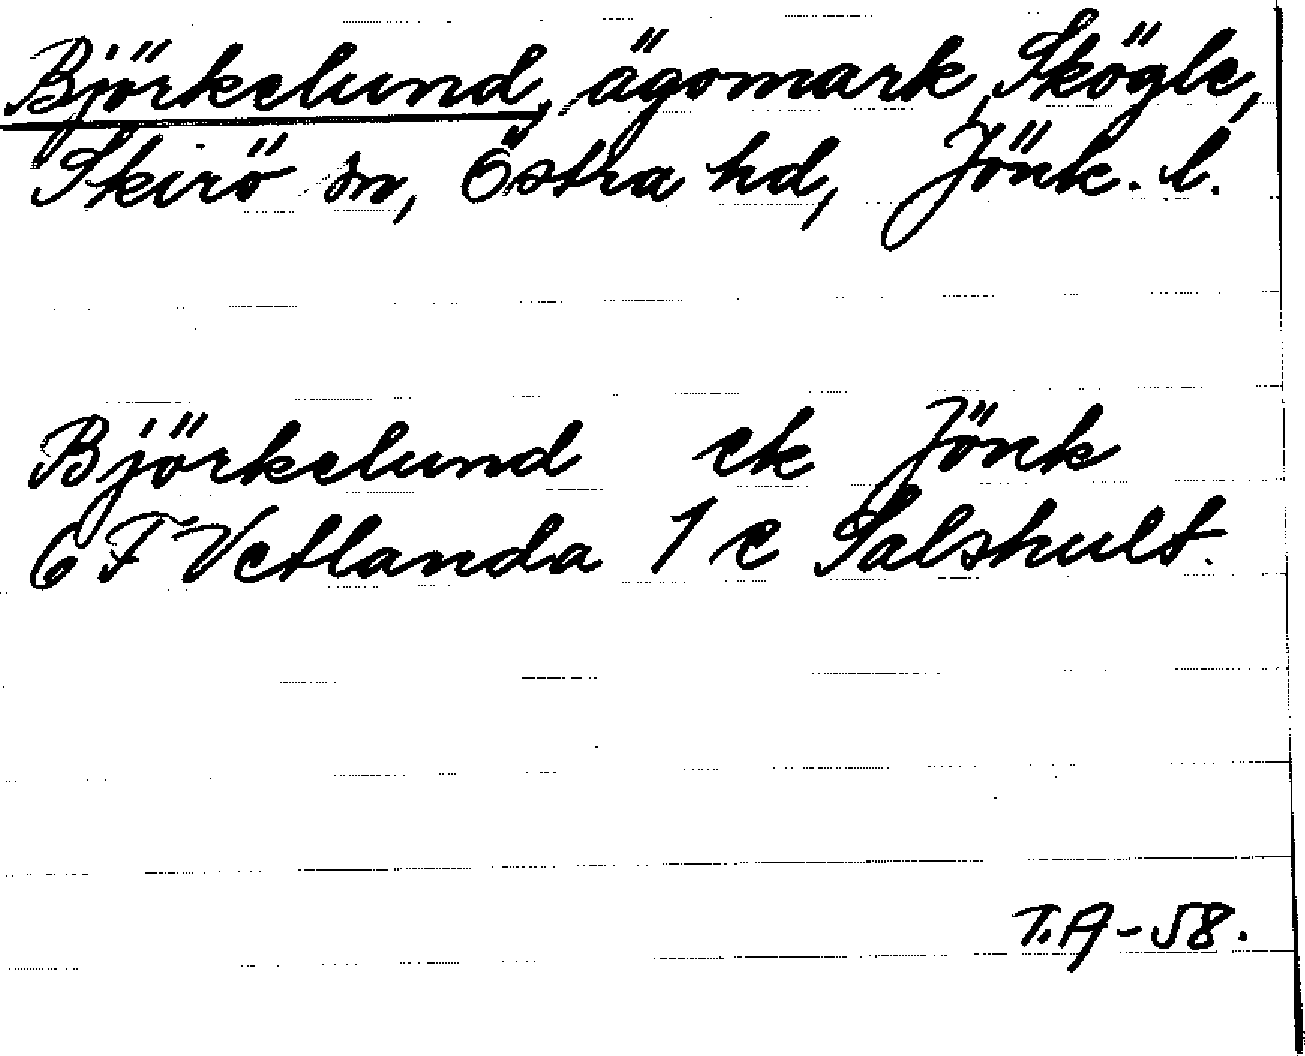 Björkelund, ägomark, Skögle,
Skirö sn, Östra hd, Jönk. l.
Björkelund ek Jönk
6 F Vetlanda 1 e Salshult.
T.A-58.